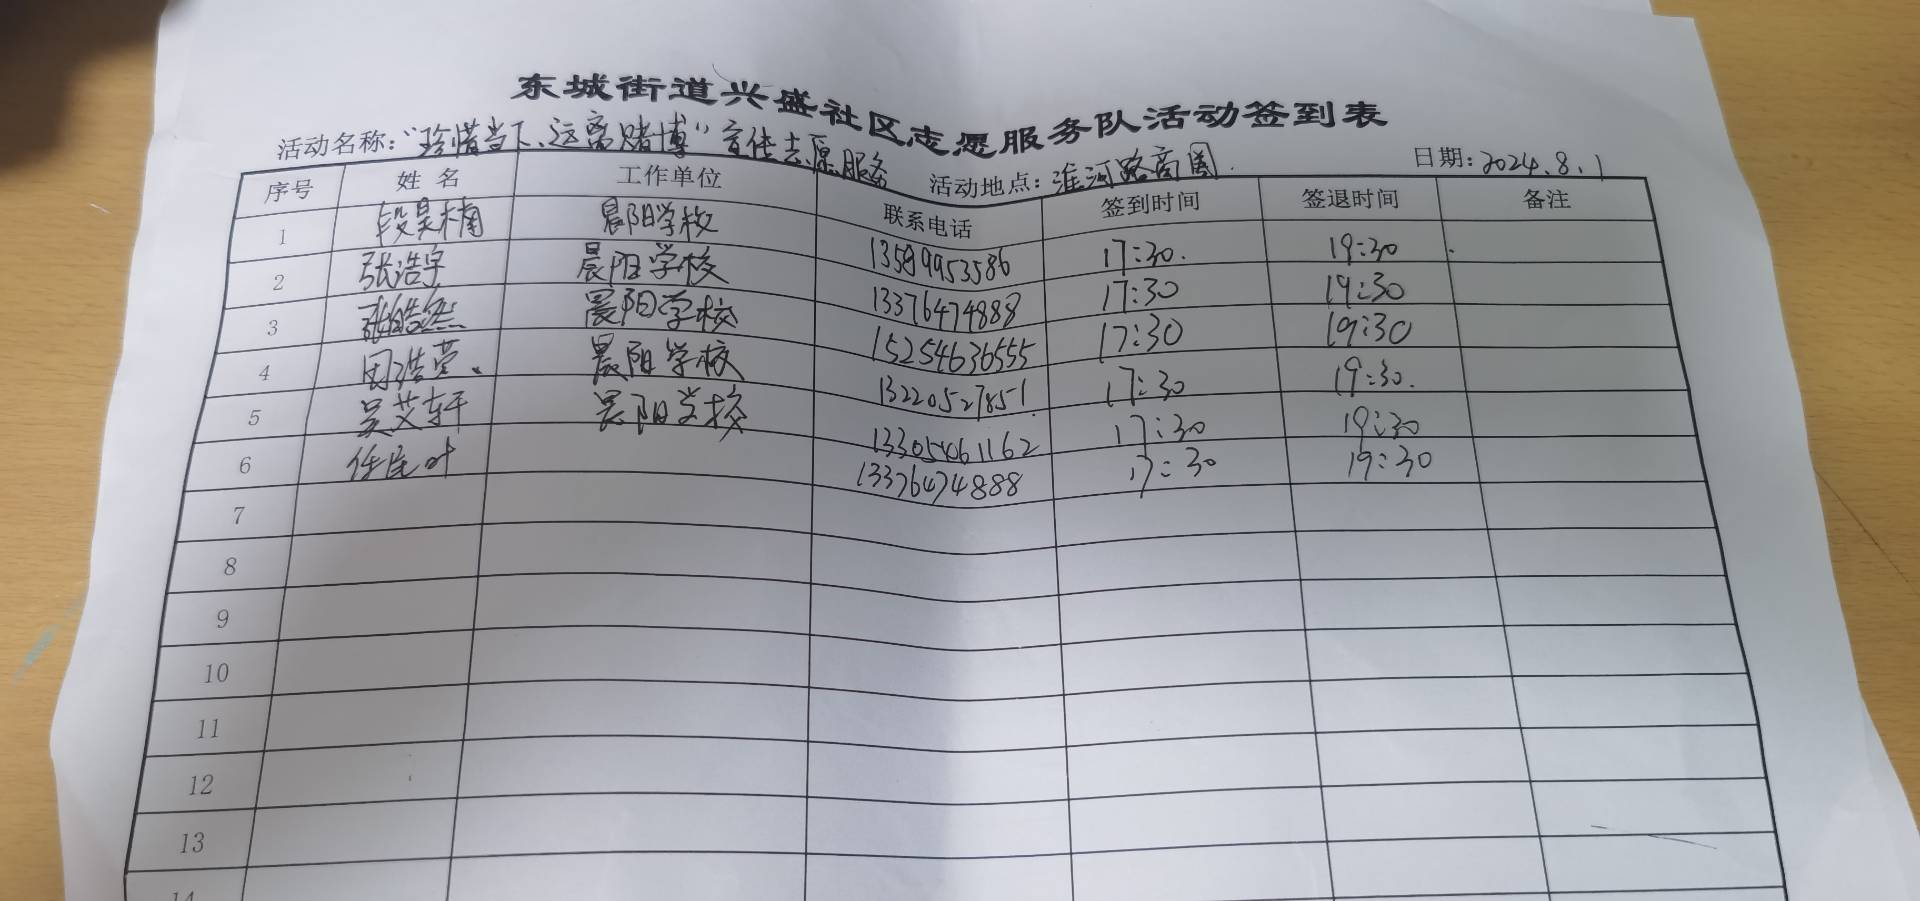 东城街道兴盛社区志愿服务队活动签到表
活动名称：“珍惜当下、远离赌博”宣传志愿服务 活动地点：淮河路商圈 日期：2024.8.1
序号 姓名 工作单位 联系电话 签到时间 签退时间 备注
1 段昊楠 晨阳学校 13589953586 17:30 19:30
2 张浩宇 晨阳学校 13376474888 17:30 19:30
3 晨阳学校 15254636555 17:30 19:30
4 周浩萱 晨阳学校 13220527851 17:30 19:30
5 吴艾轩 晨阳学校 13305461162 17:30 19:30
6 13376474888 17:30 19:30
7
8
9
10
11
12
13
14